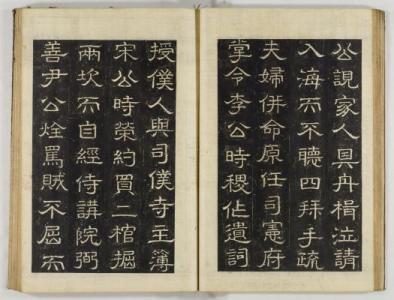 公說家人具舟楫泣請
入海而不聽四拜手疏
夫婦併命原任司憲府
掌令李公時稷作遺詞
授僕人與司僕寺主簿
宋公時榮約買二棺掘
兩坎而自經侍講院弼
善尹公烇罵賊不屈而